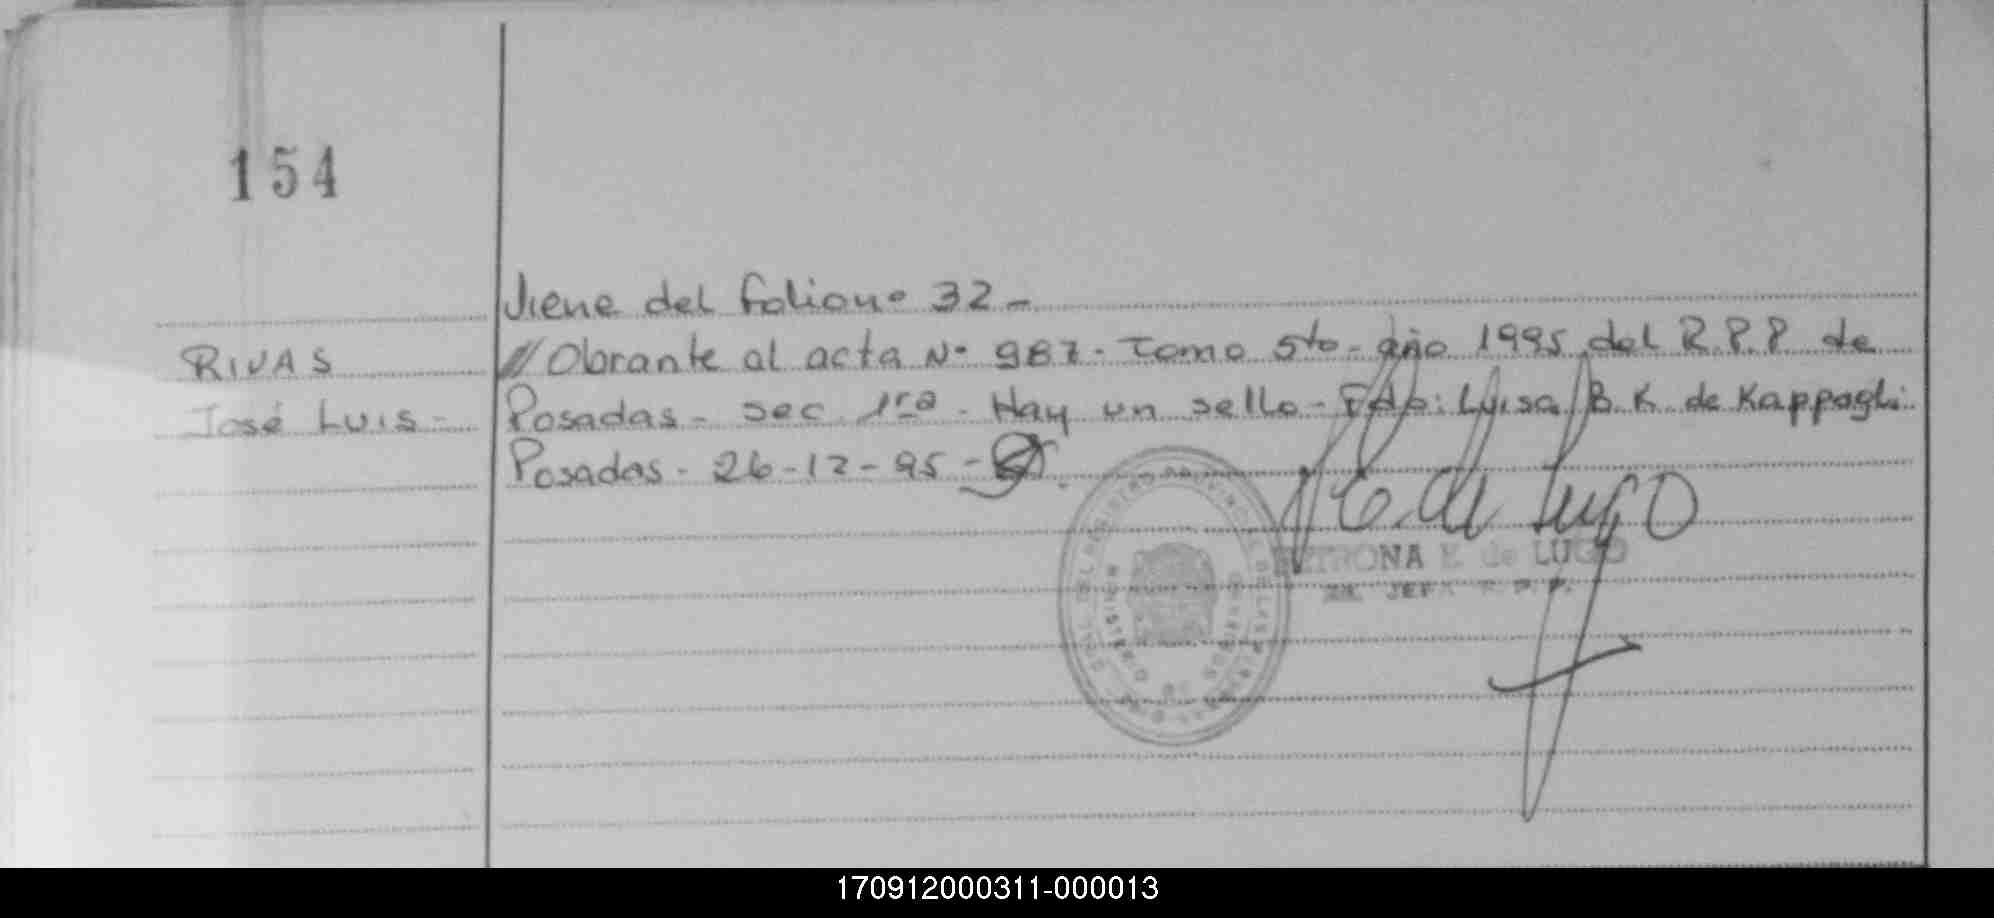 154
Viene del folio nº 32 -
RIVAS
// Obrante al acta Nº 987 - Tomo 5to - año 1995 del R.P.P de
José Luis -
Posadas - sec 1ra - Hay un sello - Fdo: Luisa B. K. de Kappagli
Posadas - 26-12-95 -
PETRONA E. de LUGO
JEFA R.P.P.
170912000311-000013